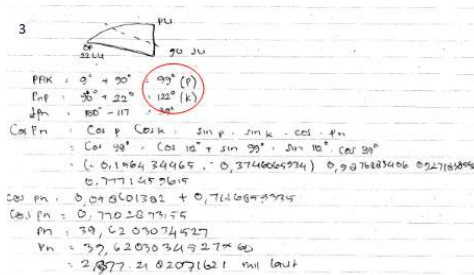 3
PU
OP
22 LU
90 JU
PAK : 9° + 90° : 99° (P)
PnP : 90° + 22° : 122° (K)
dPn : 180° - 117 : 39°
Cos Pn : Cos P Cos k . Sin p . sin k . cos . Pn
: Cos 98° . Cos 12° + sin 99° . sin 10° . Cos 39°
= (- 0,1564 34465 . - 0,3746065934)
0,7771459615
Cos pn : 0,058601382 + 0,7116859335
Cos Pn = 0,7702873155
Pn : 39,6203034527
Pn = 39,6203034527 × 60
= 2,377.2182071621 mil laut